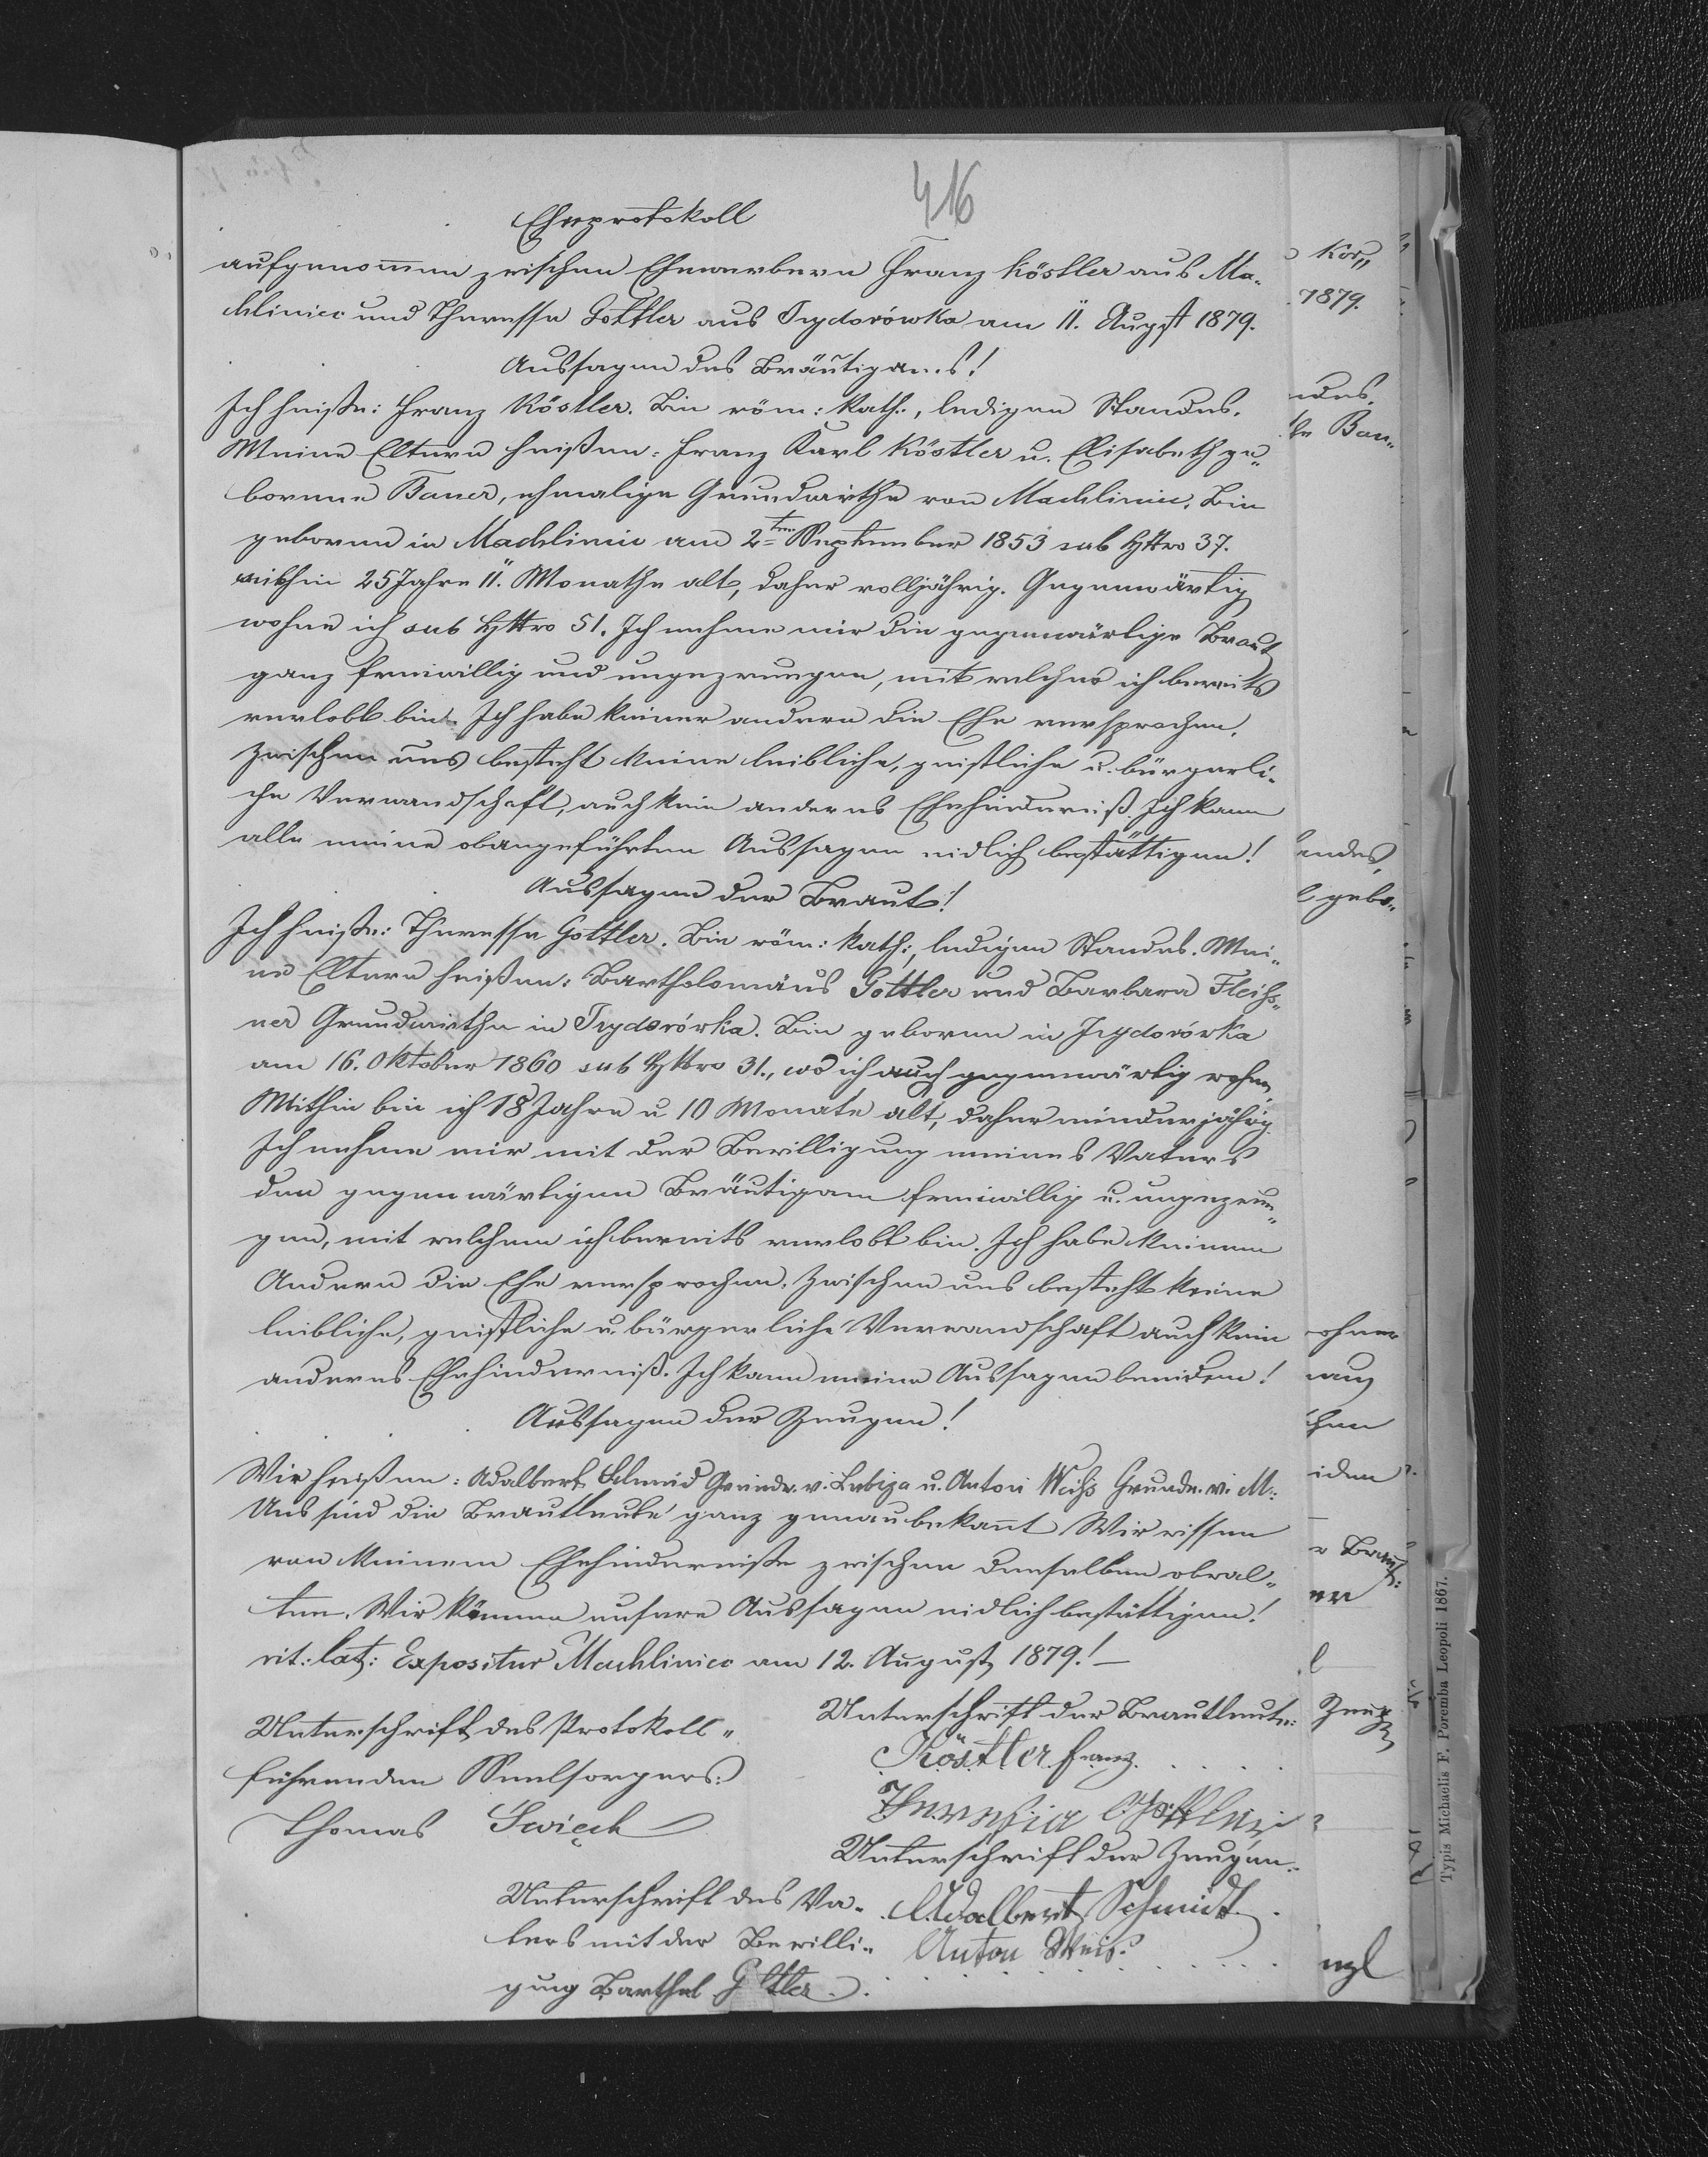 416
Eheprotokoll
aufgenommen zwischen Ehewerbern Franz Köstler aus Ma-
chliniec und Theressa Gottler aus Izydorówka am 11. August 1879.
Aussagen des Bräutigams!
Ich heiße: Franz Köstler. Bin röm: kath:, ledigen Standes.
Meine Eltern heißen: Franz Karl Köstler u. Elisabeth ge„
borene Baner, ehmalige Grundwirthe von Machliniec. Bin
geboren in Machliniec am 2ten September 1853 sub Hsnro 37.
mithin 25 Jahre 11. Monathe alt, daher volljährig. Gegenwärtig
wohne ich sub Hsnro 51. Ich nehme mir die gegenwärtige Braut
ganz freiwillig und ungezwungen, mit welcher ich bereits
verlobt bin. Ich habe keiner andern die Ehe versprochen.
Zwischen uns besteht keine leibliche, geistliche u. bürgerli-
che Verwandschaft, auch kein anderes Ehehinderniß. Ich kann
alle meine obangeführten Aussagen eidlich bestättigen!
Aussagen der Braut!
Ich heiße: Theressa Gottler. Bin röm: kath:, ledigen Standes. Mei„
ne Eltern heißen: Bartholomäus Gottler und Barbara Fleiß„
ner Grundwirthe in Izydorówka. Bin geboren in Izydorówka
am 16. Oktober 1860 sub Hsnro 31., wo ich auch gegenwärtig wohne,
Mithin bin ich 18 Jahre u 10 Monate alt, daher minderjährig
Ich nehme mir mit der Bewilligung meines Vaters
den gegenwärtigen Bräutigam freiwillig u. ungezwun„
gen, mit welchem ich bereits verlobt bin. Ich habe keinem
Andern die Ehe versprochen. Zwischen uns besteht keine
leibliche, geistliche u. bürgerliche Verwandschaft auch kein
anderes Ehehinderniß. Ich kann meine Aussagen beeiden!
Aussagen der Zeugen!
Wir heißen: Adalbert Schmid Grundw. v. Lubiza u. Anton Weiß Grundw. v. M:
Uns sind die Brautleute ganz genau bekannt Wir wissen
von keinem Ehehinderniße zwischen denselben obwal„
ten. Wir können unsere Aussagen eidlich bestättigen!
rit: lat: Expositur Machliniec am 12. August 1879! —
Unterschrift des Protokoll„
führenden Seelsorgers:
Thomas Święch
Unterschrift der Brautleute:
Köstler Franz
Theresia Gottler
Unterschrift der Zeugen:
Adalbert Schmidt
Anton Weiß
Unterschrift des Va-
ters mit der Bewilli„
gung Barthel G ttler
Kor„
1879.
Typis Michaelis F. Poremba Leopoli 1867.